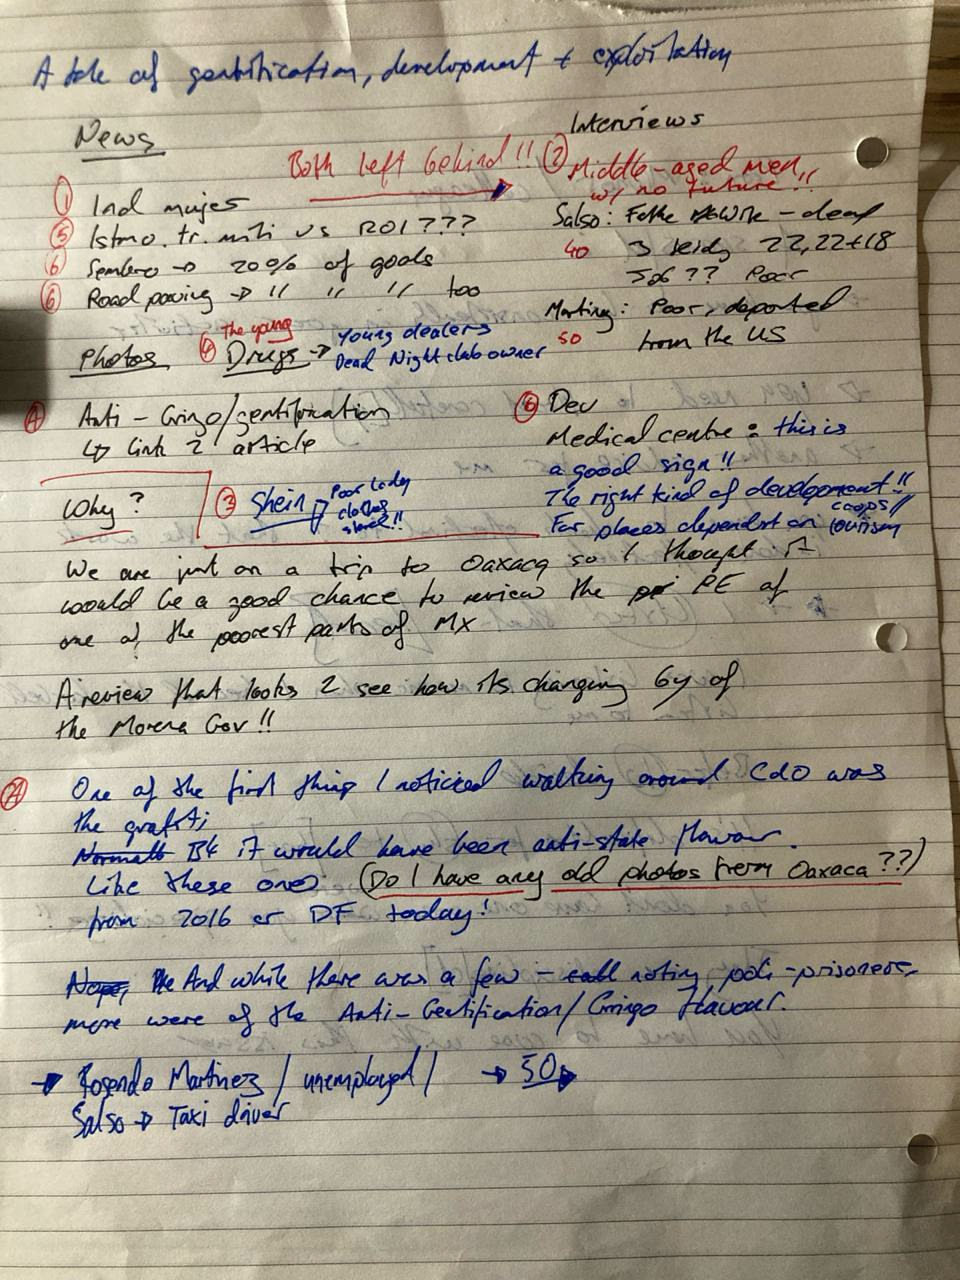 A tale of gentrification, development + exploitation
News
Interviews
Both left behind!! ② Middle-aged men,
w/ no future!!
① Ind mujes
⑤ Istmo. tr. miti vs ROI???
⑥ Sembero → 20% of goods
⑥ Road paving → " " " too
Salso: Father - deaf
40 3 22, 22 + 18
Job?? Poor
Marting: Poor, deported
50 from the US
Photos
④ the young
Drugs → Young dealers
Dead Nightclub owner
④ Anti-Gringo/gentrification
↳ link 2 article
⑥ Dev
Medical centre: this is
a good sign!!
The right kind of development!!
For places dependent on tourism
coops//
Why?
③ Shein → Poor today
clothes
store!!
We are just on a trip to Oaxaca so I thought it
would be a good chance to review the PE of
one of the poorest parts of MX
A review that looks 2 see how its changing 6y of
the Morena Gov!!
One of the first things I noticed walking around CdO was
the grafiti
Normall B4 it would have been anti-state flavour.
Like these ones: (Do I have any old photos from Oaxaca??)
from 2016 or DF today!
Nope, And while there was a few - noting poli-prisoners,
more were of the Anti-Gentification/Gringo flavour.
→ Rosendo Martinez / unemployed / → 50
Salso → Taxi driver